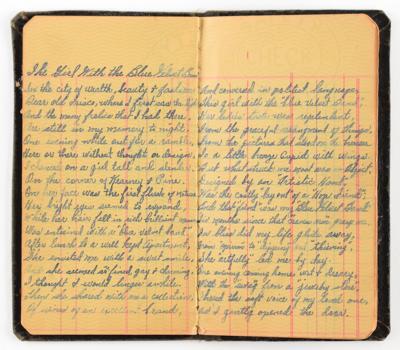 The Girl With the Blue Velvet Band
In the city of wealth, beauty & fashion
Dear old Frisco, where I first saw the light
And the many frolics that I had there
Are still in my memory to night.
One evening while out for a ramble
Here or there without thought or design
I chanced on a girl tall and slender
On the corner of Kearney & Pine.
On her face was the first flush of nature
Her bright eyes seemed to expand
While her hair fell in rich brilliant
Was entwined with a Blue velvet band.
After lunch to a well kept apartment,
She invited me with a sweet smile.
And she seemed so refined, gay & charming
I thought I would linger awhile.
Then she shared with me a collection
Of wines of an excellent brand,
And conversed in politest language,
This girl with the "blue velvet band".
From the graceful arrangment of things
From the pictures that stood on the bureau
To a little bronze Cupid with wings.
But what struck me most was an object,
Designed by an Artistic hand
Was the costly lay out of a "Hop fiend"
And that "fiend" was my "Blue Velvet Band"
She "artfully" led me by day.
One evening coming home, wet & dreary,
With the swag from a "jewelry store",
I heard the soft voice of my loved one,
As I gently opened the door.